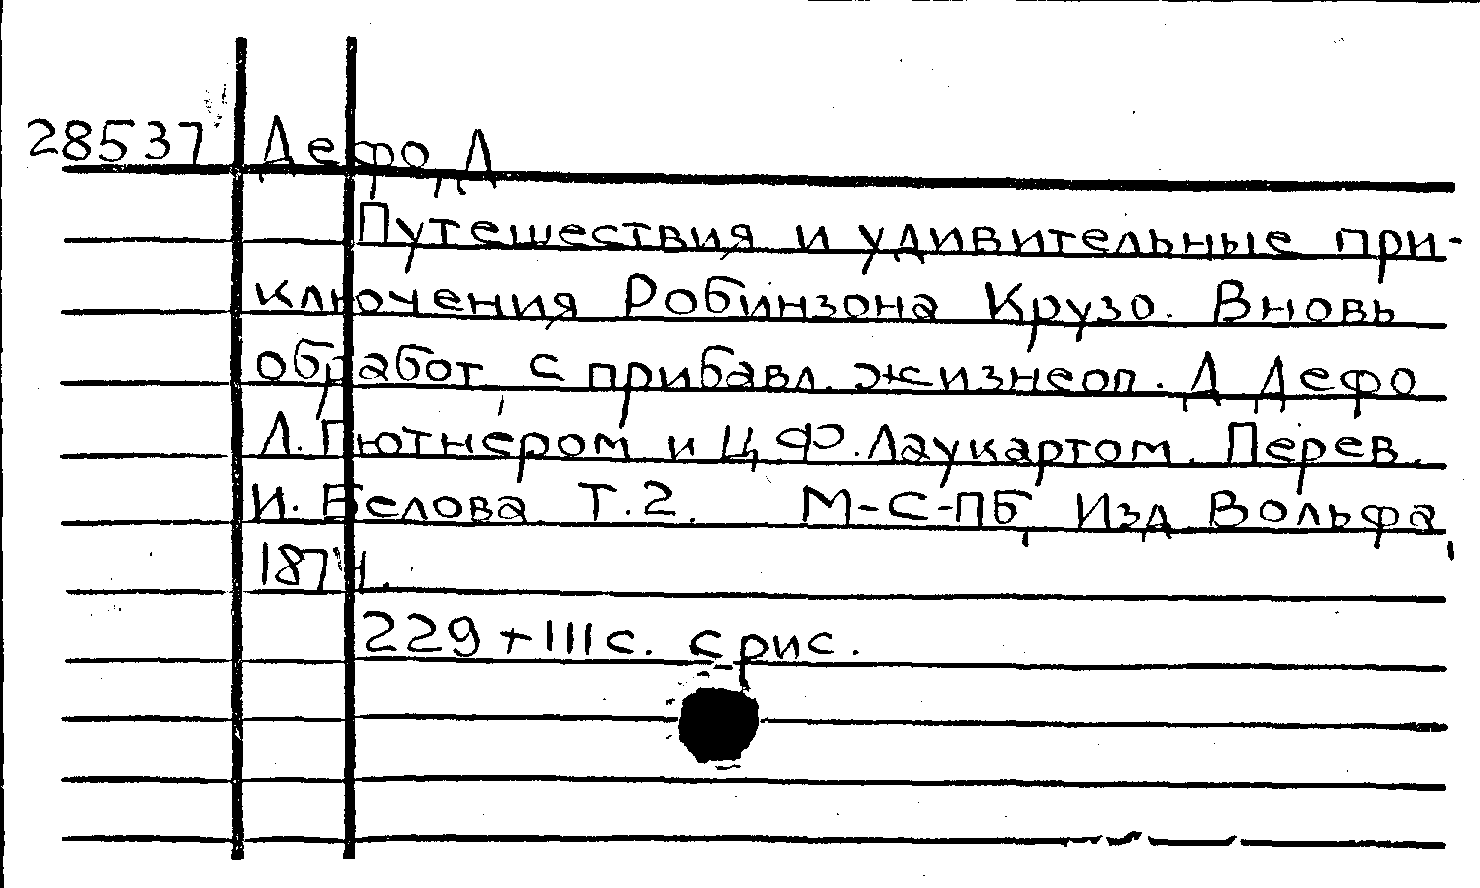 28537 Дефо, Д
Путешествия и удивительные при-
ключения Робинзона Крузо. Вновь
обработ. с прибавл. жизнеоп. Д Дефо
Л. Гютнером и Ц. Ф. Лаукартом. Перев.
И. Белова Т.2. М-С-ПБ, Изд Вольфа,
1874.
229 + III с. с рис.